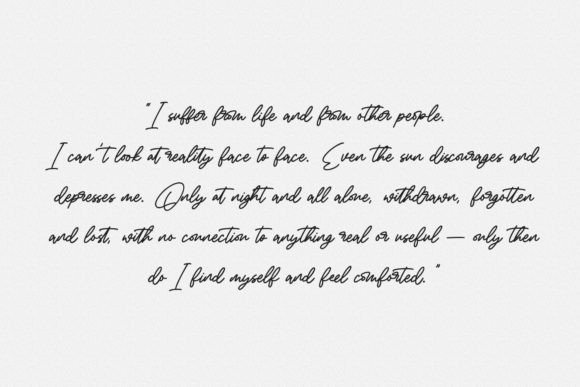 "I suffer from life and from other people.
I can't look at reality face to face. Even the sun discourages and
depresses me. Only at night and all alone, withdrawn, forgotten
and lost, with no connection to anything real or useful — only then
do I find myself and feel comforted."